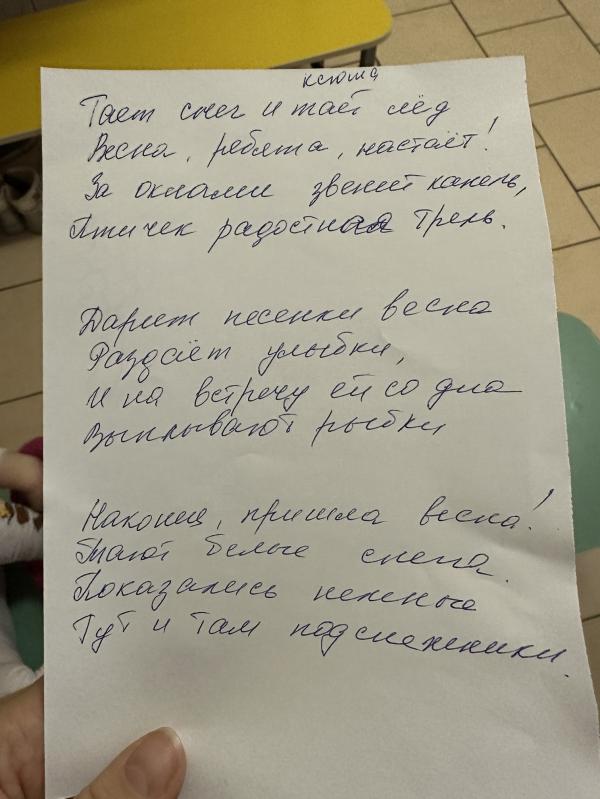 ксюша
Тает снег и тает лёд
Весна, ребята, настаёт!
За окнами звенит капель,
Птичек радостная трель.
Дарит песенки весна
Раздаёт улыбки,
И на встречу ей со дна
Выплывают рыбки
Наконец, пришла весна!
Тают белые снега.
Показались нежные
Тут и там подснежники.